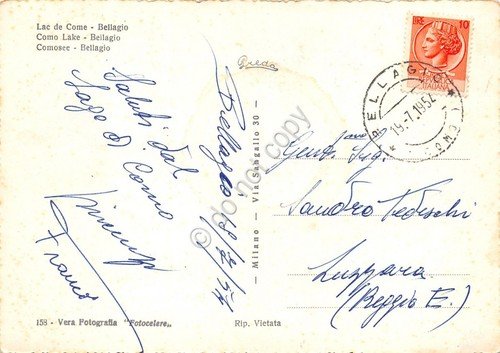 Lac de Come - Bellagio
Como Lake - Bellagio
Comosee - Bellagio
Saluti dal
Lago di Como
Franco
Bellagio 18/7/54
Milano - Via Sangallo 30 -
LIRE 10
ITALIANA
BELLAGIO (COMO)
19.7.1954
Gent. Sig.
Sandro Tedeschi
Luzzara
(Reggio E.)
158 - Vera Fotografia "Fotocelere"
Rip. Vietata